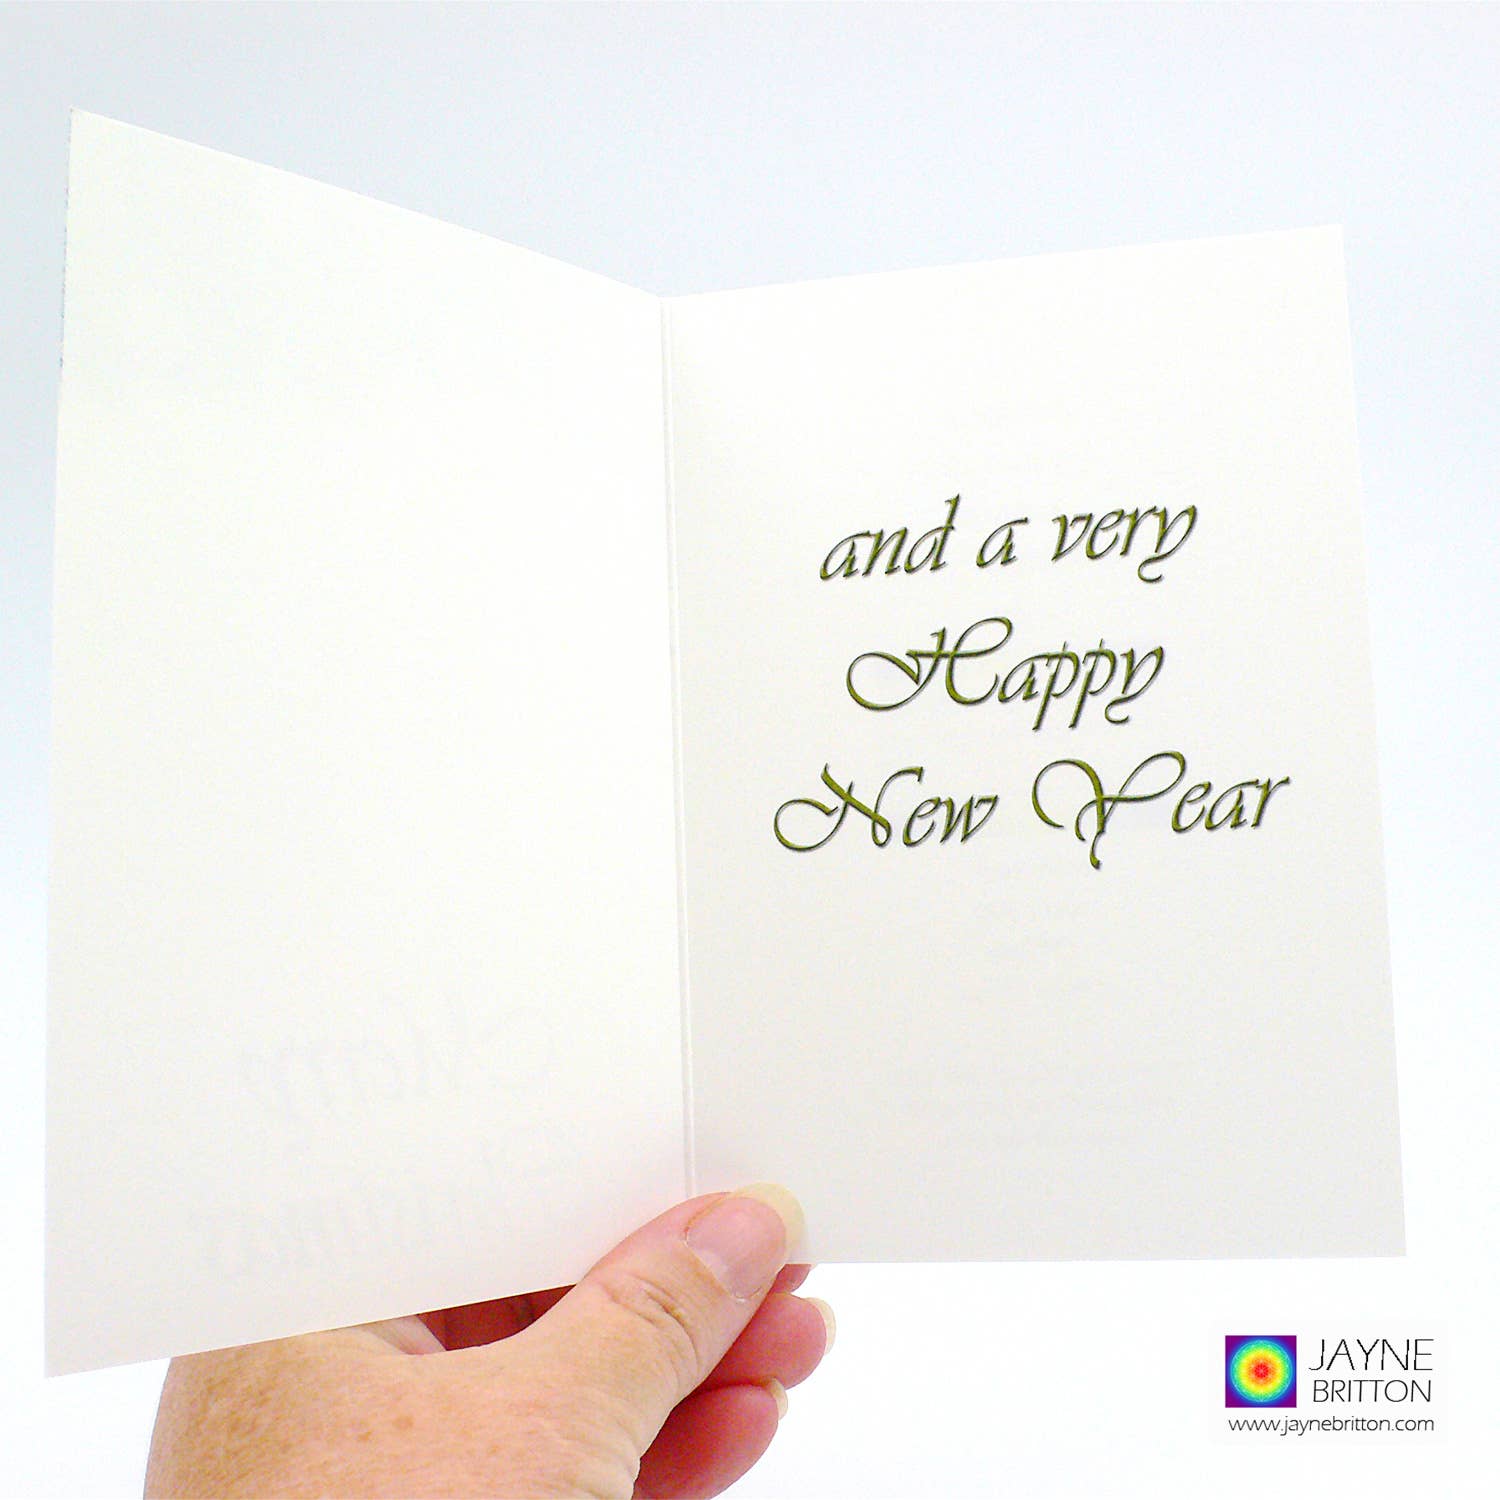 and a very
Happy
New Year
JAYNE
BRITTON
www.jaynebritton.com